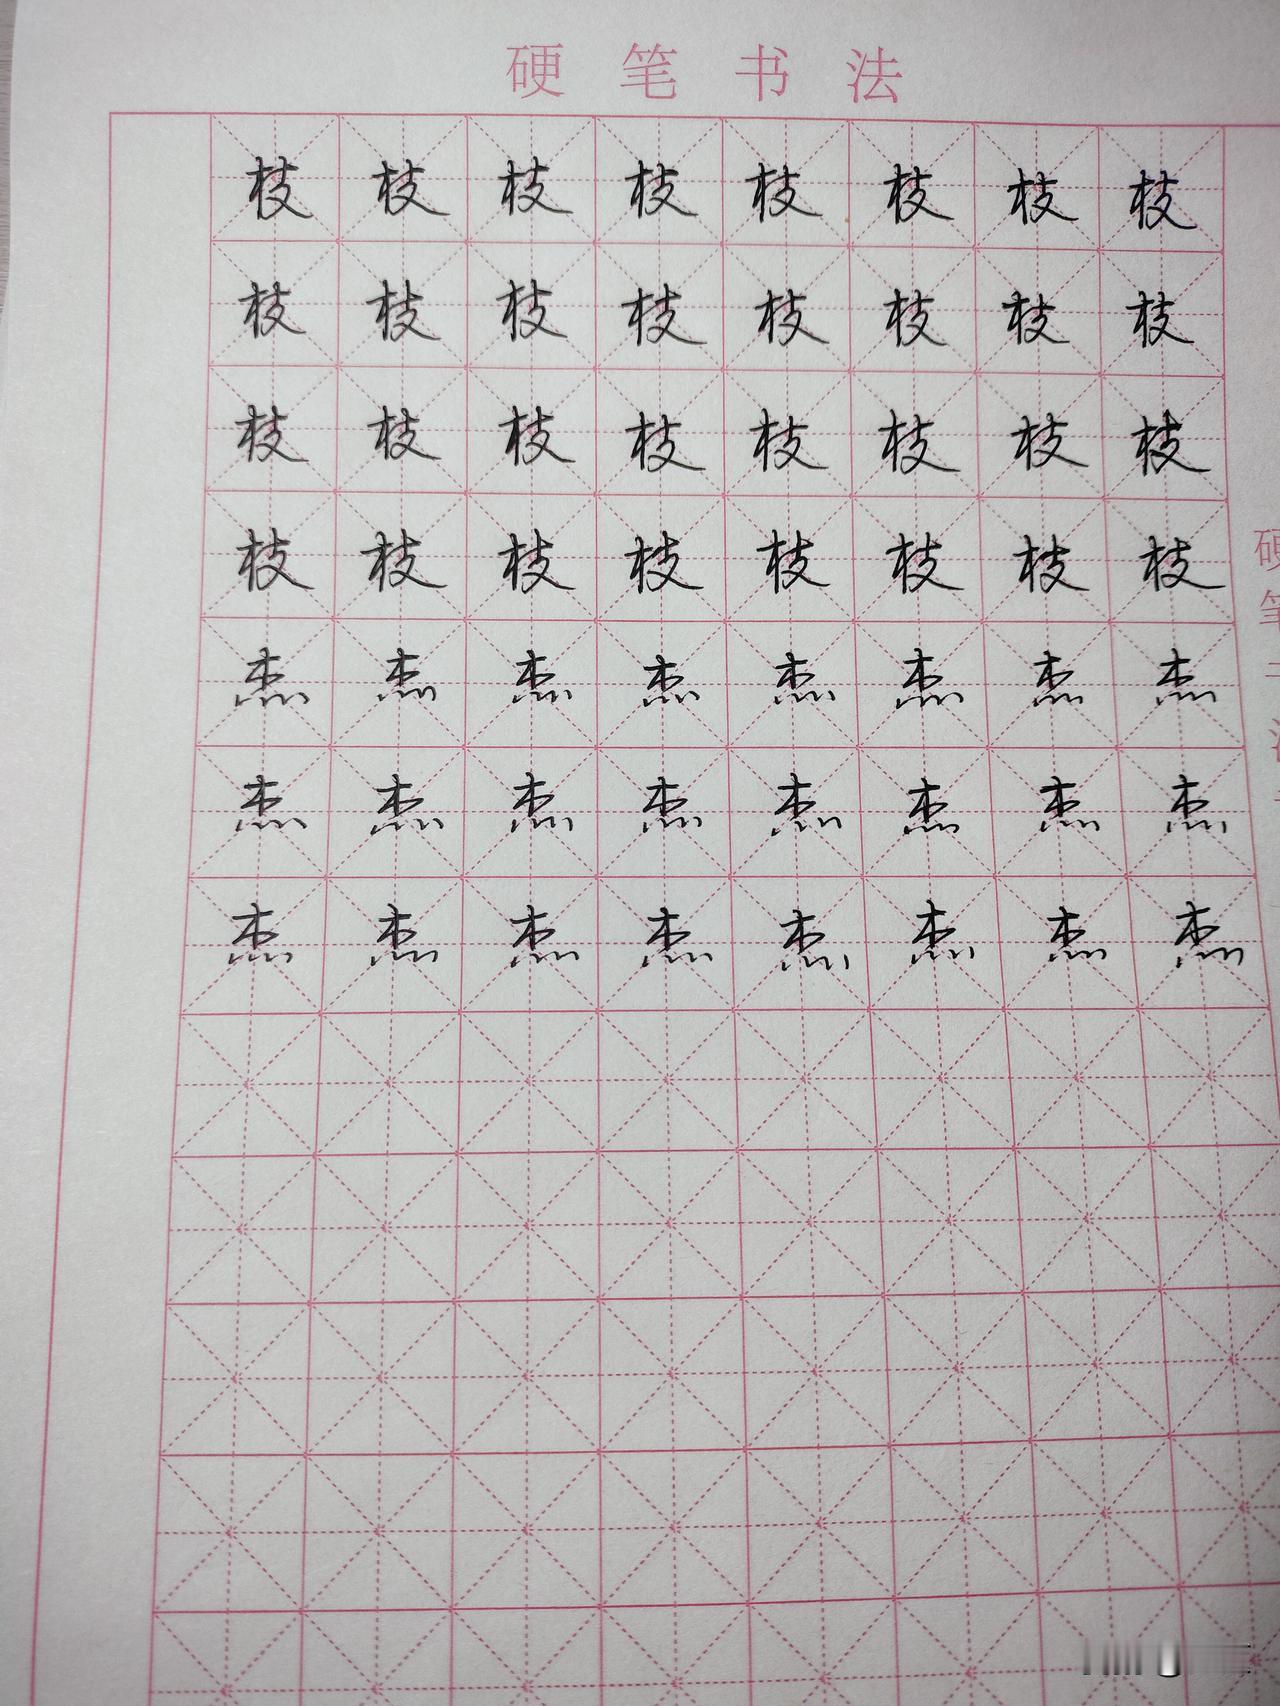 硬笔书法
枝枝枝枝枝枝枝枝
枝枝枝枝枝枝枝枝
枝枝枝枝枝枝枝枝
枝枝枝枝枝枝枝枝
杰杰杰杰杰杰杰杰
杰杰杰杰杰杰杰杰
杰杰杰杰杰杰杰杰
硬笔